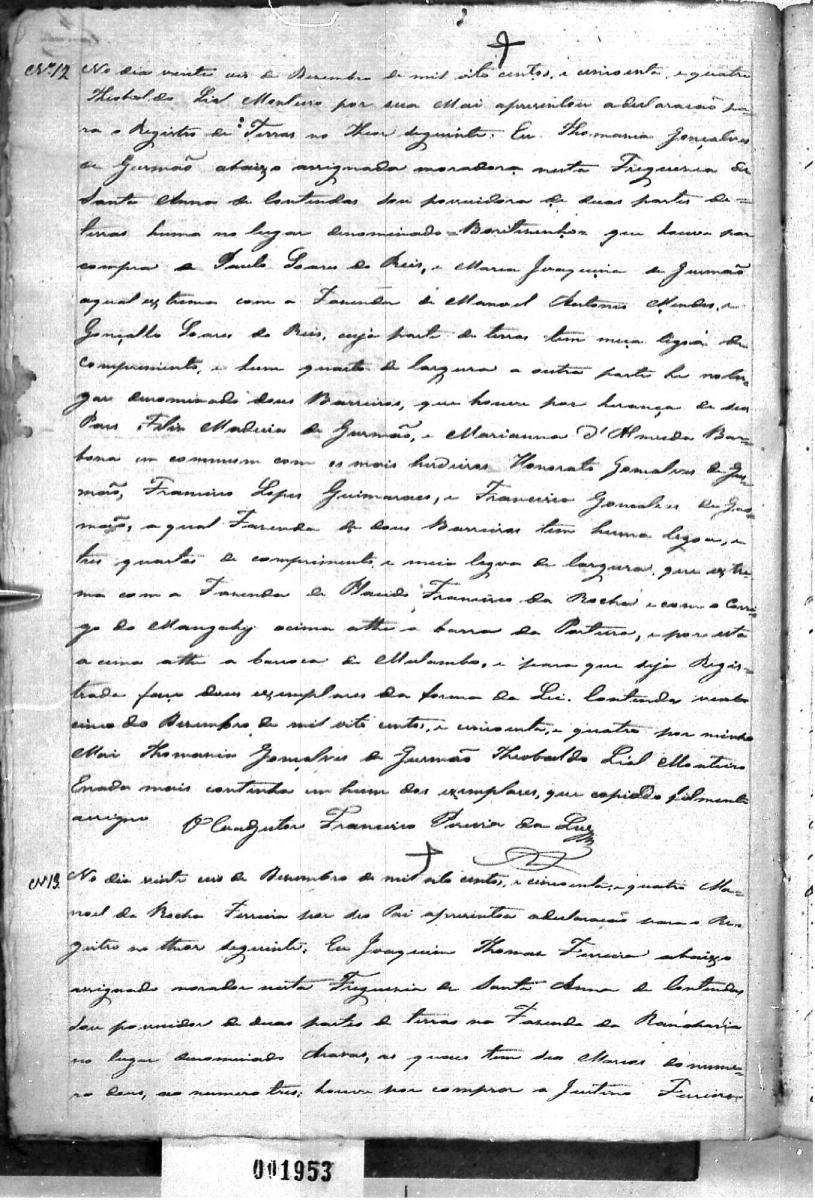 Nº 12 No dia vinte seis de Dezembro de mil oito centos, e cincoenta, e quatro
Theobaldo Lial Monteiro por sua Mai aprezentou a declaração pa-
ra o Registro de Terras no theor seguinte. Eu Thomazia Gonçalves
de Gusmão abaixo assignada moradora nesta Freguezia de
Santa Anna de Contendas sou possuidora de duas partes de-
terras huma no lugar denominado = Boritirinho = que houve por
compra a Paulo Soares do Reis, e Maria Joaquina de Gusmão
a qual extrema com a Fazenda de Manoel Antonio Mendes, e
Gonçallo Soares do Reis, cuja parte de terras tem meia legoa de
comprimento, e hum quarto de largura a outra parte he no lu-
gar denominado dous Barreiros, que houve por herança de seos
Pais Felis Madeira de Gusmão, e Marianna d'Almeida Bar-
boza em commum com os mais herdeiros Honorato Gonçalves de Gus-
mão, Francisco Lopes Guimaraes, e Francisco Gonçalves de Gus-
mão, a qual Fazenda de dous Barreiros tem huma legoa, e
tres quartos de comprimento, e meia legoa de largura, que extre-
ma com a Fazenda de Placido Francisco da Rocha e com o Corri-
go do Mangahy acima athe a barra da Porteira, e por esta
a cima athe a baroca do Mulambo, e para que seja Regis-
trada faço dous exemplares da forma da Lei. Contendas vinte
cinco de Dezembro de mil oito centos, e cincoenta, e quatro por minha
Mai Thomazia Gonçalves de Gusmão Theobaldo Lial Monteiro
E nada mais continha em hum dos exemplares, que copiado fielmente
assigno O Coadjutor Francisco Pereira da Luz
Nº 13. No dia vinte seis de Dezembro de mil oito centos, e cincoenta, e quatro Ma-
noel da Rocha Ferreira por seo Pai aprezentou a declaração para o Re-
gistro no theor seguinte. Eu Joaquim Thomaz Ferreira abaixo
assignado morador nesta Freguezia de Santa Anna de Contendas
sou possuidor de duas partes de terras na Fazenda da Rancharia
no lugar denominado as quaes tem seos Marcos do nume-
ro dous, ao numero tres; houve por compra a Justino Ferreira
001953